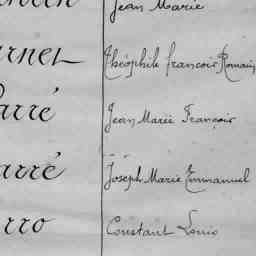 Jean Marie
Théophile francois Romain
arré Jean Marie François
arré Joseph Marie Emmanuel
rro Constant Louis